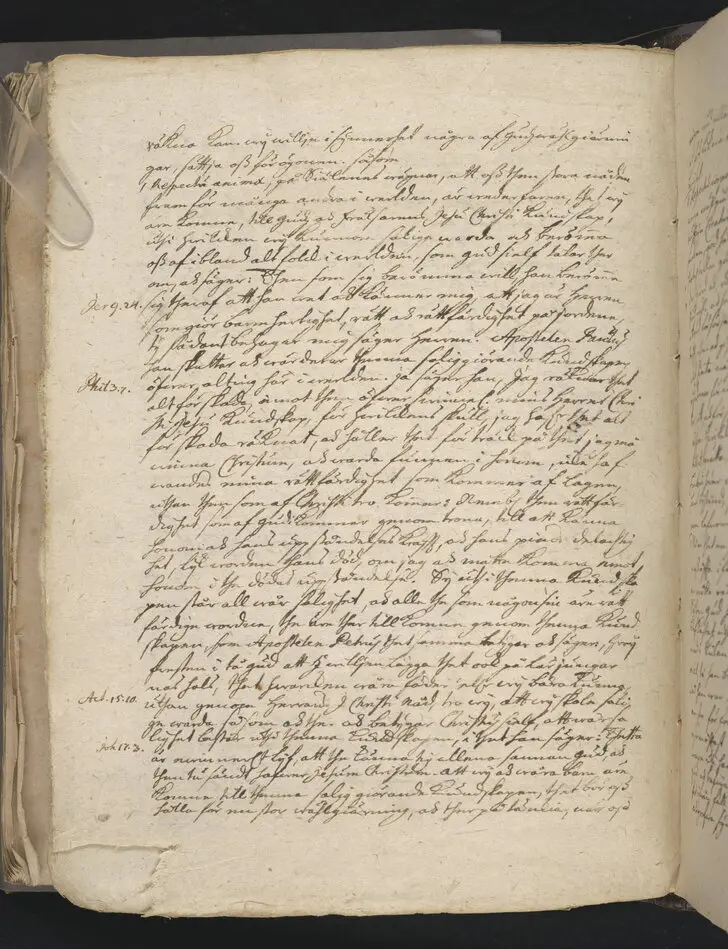 räkna kan. wij willja i synnerhet några af Gudz wälgiärnin
gar, sättja oss för ögonen. såsom
1, Respectu animæ, på Siälenes wägnar, att oss then stora nåden
fram för många andra i werlden, är wederfaren, thet wij
äre komne, till Gudz och Frälsarens Jesu Christi kundskap,
uthi hwilken wij kunnom salige warda och berömma
oss af ibland alt folck i werlden, som Gud sielf talar ther
om, och säger: Then som sig berömma will han berömme
Jer 9. 24. sig theraf att han wet och känner mig, att jag är Herren
som giör barmhertighet, rätt och rättfärdighet på jordene,
ty sådant behagar mig säger Herren. Apostelen Paulus
han skattar och wärderar thenna saliggiörande kundskapen
Phil 3. 7. öfwer alting här i werlden. Ja säger han, Jag räknar thet
alt för skada emot then öfwer min Herres Chri
sti Jesu kundskap, för hwilkens skull, jag hafwer thet alt
för skada räknat, och håller thet för träck på thet jag må
winna Christum, och warda funnen i honom, icke haf
wandes mina rättfärdighet, som kommer af lagen,
uthan then som af Christi tro komer: Nembl. then rättfär
dighet som af Gud kommer genom trona, till att känna
honom och hans upståndelses krafft, och hans pinos delachtig
het, lijk worden hans död, om jag och måtte komma emot
honom i the dödas upståndelse. Ty uthi thenna kundska
pen står all wår salighet, och alle the som någonsin äre rätt
färdige wordne, the äre ther till komne genom thenna kund
skapen, som Apostelen Petrus thet samma betygar och säger, hwij
fresten i tå Gud att I willjen läggia thet ook på Lärjungar
nas hals, thet hwarcken wåra fäder eller wij bära kunno,
Act. 15. 10. uthan genom Herrans J Christi Nåd, tro wij, att wij skole sali
ge warda såsom och the. och betygar Christus sielf, att wår sa
Joh 17. 3. lighet består uthi thenna kundskapen, i thet han säger: Thetta
är ewinnerligt lijf, att the känna tig allena sannan Gud, och
then tu sändt hafwer Jesum Christum. Att wij och wåra barn äre
komne till thenna saliggiörande kundskapen, thet bör oss
hålla för en stor wälgiärning, och therpå täncka, när oss